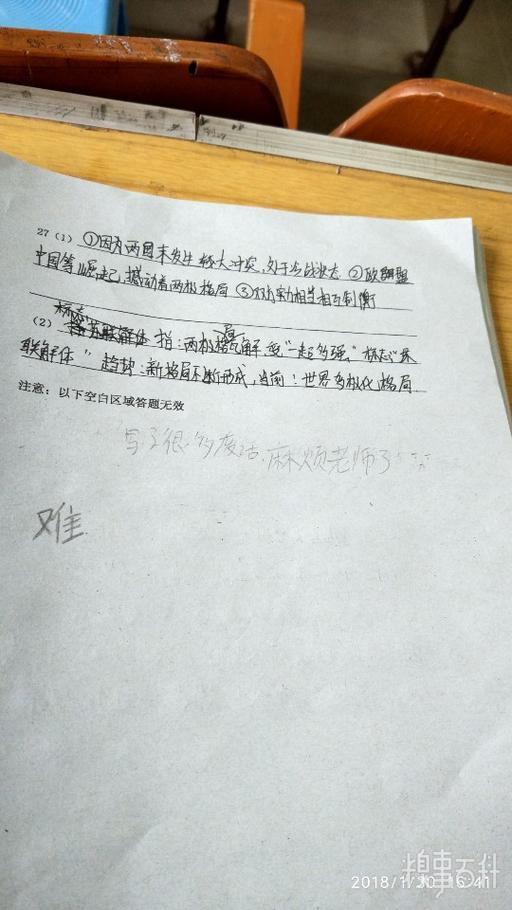 27（1）①因为两国未发生较大冲突,处于冷战状态 ②欧盟
中国等崛起,撼动着两极格局 ③双方实力相当相互制衡
标志
（2） 指:两极格局解 变"一超多强" 标志"苏
联解体" 趋势:新格局不断形成,当前:世界多极化格局
注意：以下空白区域答题无效
写了很多废话.麻烦老师了
难
糗事百科
2018/1/30 16:41